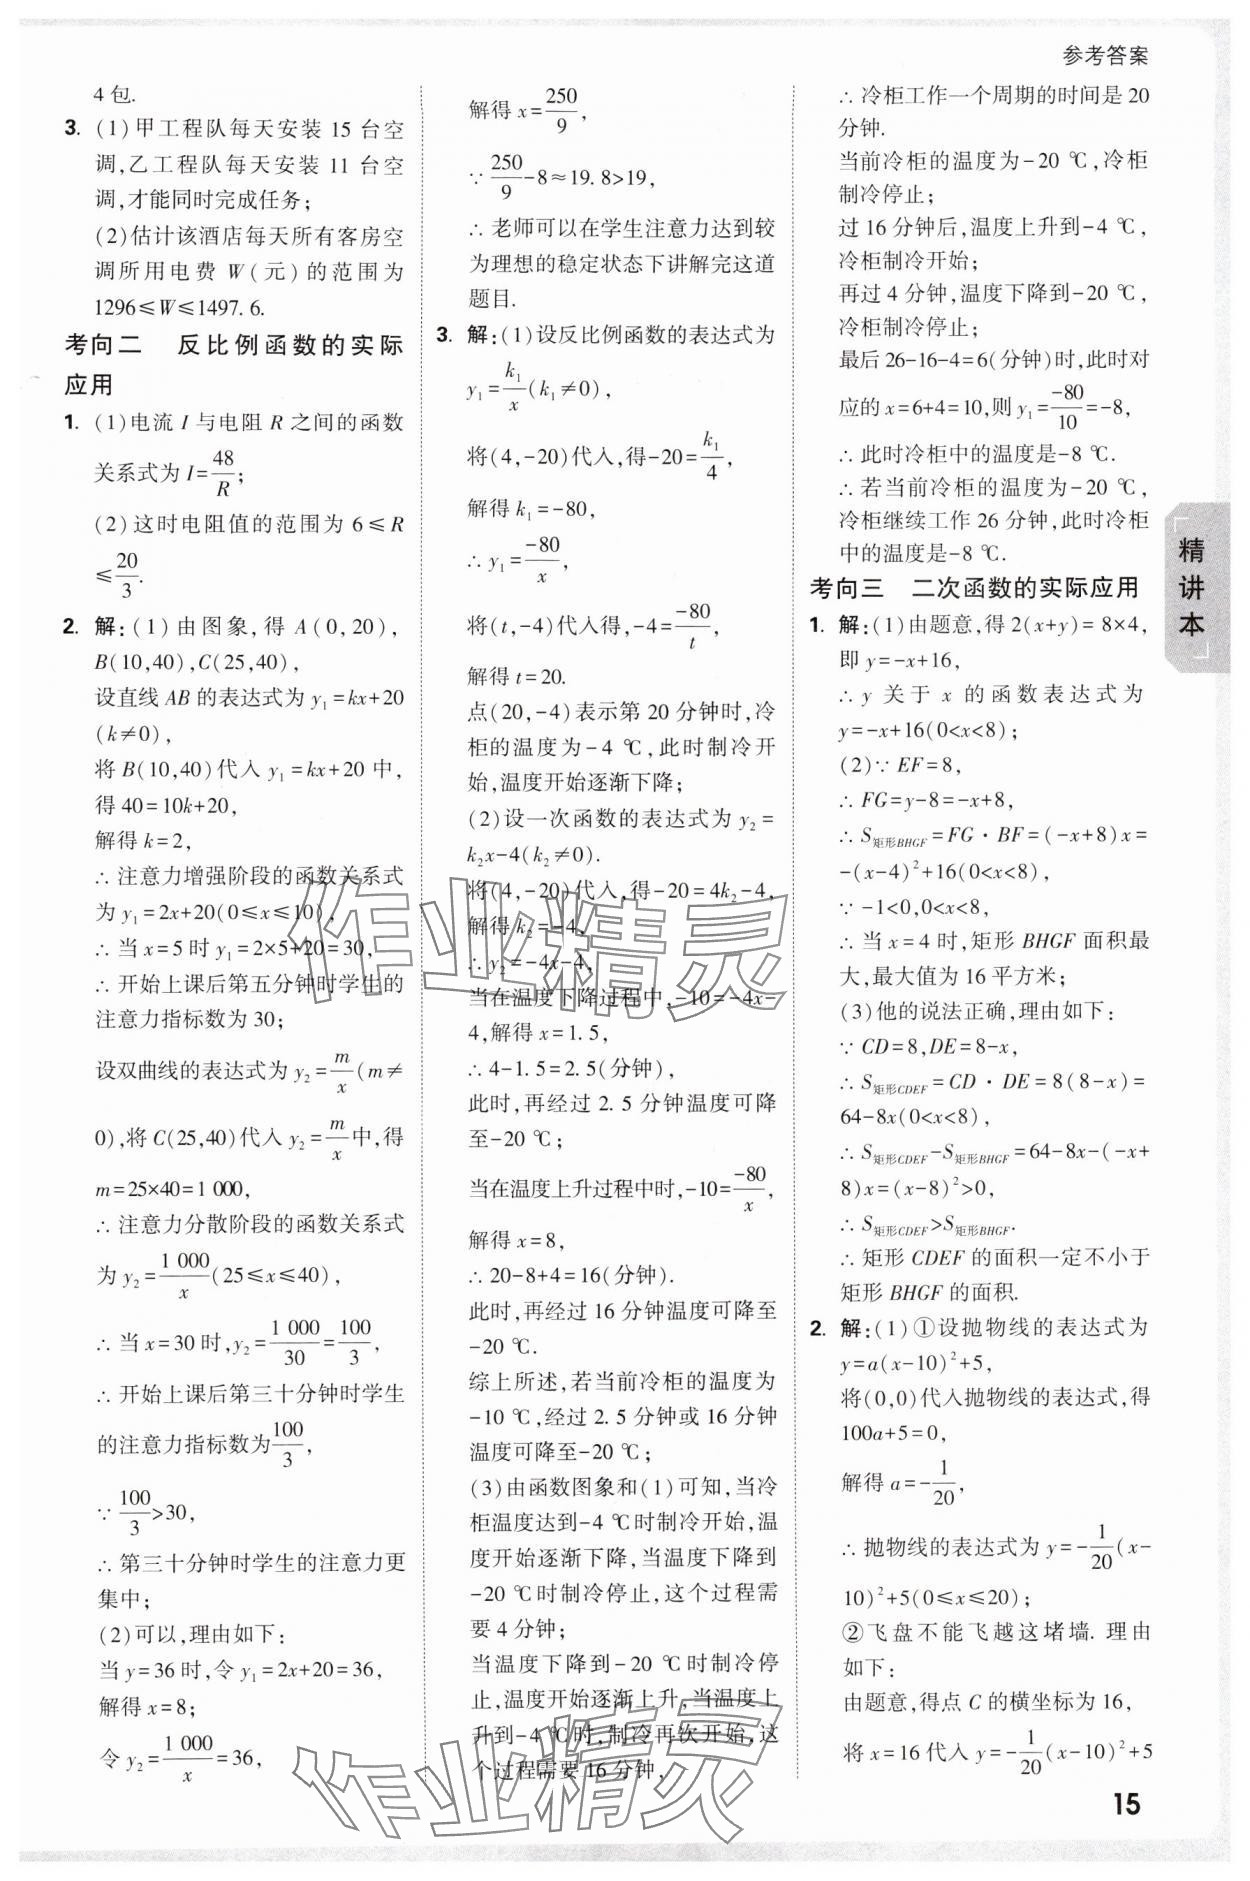 参考答案
4包.
3. (1)甲工程队每天安装 15 台空
调,乙工程队每天安装 11 台空
调,才能同时完成任务;
(2)估计该酒店每天所有客房空
调所用电费 W(元)的范围为
1296≤W≤1497.6.
考向二 反比例函数的实际
应用
1. (1)电流 I 与电阻 R 之间的函数
关系式为 I=48/R;
(2)这时电阻值的范围为 6≤R
≤20/3.
2. 解:(1)由图象,得 A(0,20),
B(10,40),C(25,40),
设直线 AB 的表达式为 y₁=kx+20
(k≠0),
将 B(10,40)代入 y₁=kx+20 中,
得 40=10k+20,
解得 k=2,
∴注意力增强阶段的函数关系式
为 y₁=2x+20(0≤x≤10),
∴当 x=5 时 y₁=2×5+20=30,
∴开始上课后第五分钟时学生的
注意力指标数为 30;
设双曲线的表达式为 y₂=m/x(m≠
0),将 C(25,40)代入 y₂=m/x中,得
m=25×40=1 000,
∴注意力分散阶段的函数关系式
为 y₂=1 000/x(25≤x≤40),
∴当 x=30 时,y₂=1 000/30=100/3,
∴开始上课后第三十分钟时学生
的注意力指标数为100/3,
∵100/3>30,
∴第三十分钟时学生的注意力更
集中;
(2)可以,理由如下:
当 y=36 时,令 y₁=2x+20=36,
解得 x=8;
令 y₂=1 000/x=36,
解得 x=250/9,
∵250/9-8≈19.8>19,
∴老师可以在学生注意力达到较
为理想的稳定状态下讲解完这道
题目.
3. 解:(1)设反比例函数的表达式为
y₁=k₁/x(k₁≠0),
将(4,-20)代入,得-20=k₁/4,
解得 k₁=-80,
∴y₁=-80/x,
将(t,-4)代入得,-4=-80/t,
解得 t=20.
点(20,-4)表示第 20 分钟时,冷
柜的温度为-4 ℃,此时制冷开
始,温度开始逐渐下降;
(2)设一次函数的表达式为 y₂=
k₂x-4(k₂≠0).
将(4,-20)代入,得-20=4k₂-4,
解得 k₂=-4,
∴y₂=-4x-4,
当在温度下降过程中,-10=-4x-
4,解得 x=1.5,
∴4-1.5=2.5(分钟),
此时,再经过 2.5 分钟温度可降
至-20 ℃;
当在温度上升过程中时,-10=-80/x,
解得 x=8,
∴20-8+4=16(分钟).
此时,再经过 16 分钟温度可降至
-20 ℃.
综上所述,若当前冷柜的温度为
-10 ℃,经过 2.5 分钟或 16 分钟
温度可降至-20 ℃;
(3)由函数图象和(1)可知,当冷
柜温度达到-4 ℃时制冷开始,温
度开始逐渐下降,当温度降到
-20 ℃时制冷停止,这个过程需
要 4 分钟;
当温度下降到-20 ℃时制冷停
止,温度开始逐渐上升,当温度上
升到-4 ℃时,制冷再次开始,这
个过程需要 16 分钟,
∴冷柜工作一个周期的时间是 20
分钟.
当前冷柜的温度为-20 ℃,冷柜
制冷停止;
过 16 分钟后,温度上升到-4 ℃,
冷柜制冷开始;
再过 4 分钟,温度下降到-20 ℃,
冷柜制冷停止;
最后 26-16-4=6(分钟)时,此时对
应的 x=6+4=10,则 y₁=-80/10=-8,
∴此时冷柜中的温度是-8 ℃.
∴若当前冷柜的温度为-20 ℃,
冷柜继续工作 26 分钟,此时冷柜
中的温度是-8 ℃.
考向三 二次函数的实际应用
1. 解:(1)由题意,得 2(x+y)=8×4,
即 y=-x+16,
∴y 关于 x 的函数表达式为
y=-x+16(0<x<8);
(2)∵EF=8,
∴FG=y-8=-x+8,
∴S矩形BHGF=FG·BF=(-x+8)x=
-(x-4)²+16(0<x<8),
∵-1<0,0<x<8,
∴当 x=4 时,矩形 BHGF 面积最
大,最大值为 16 平方米;
(3)他的说法正确,理由如下:
∵CD=8,DE=8-x,
∴S矩形CDEF=CD·DE=8(8-x)=
64-8x(0<x<8),
∴S矩形CDEF-S矩形BHGF=64-8x-(-x+
8)x=(x-8)²>0,
∴S矩形CDEF>S矩形BHGF.
∴矩形 CDEF 的面积一定不小于
矩形 BHGF 的面积.
2. 解:(1)①设抛物线的表达式为
y=a(x-10)²+5,
将(0,0)代入抛物线的表达式,得
100a+5=0,
解得 a=-1/20,
∴抛物线的表达式为 y=-1/20(x-
10)²+5(0≤x≤20);
②飞盘不能飞越这堵墙. 理由
如下:
由题意,得点 C 的横坐标为 16,
将 x=16 代入 y=-1/20(x-10)²+5
精讲本
15
作业精灵
作业精灵